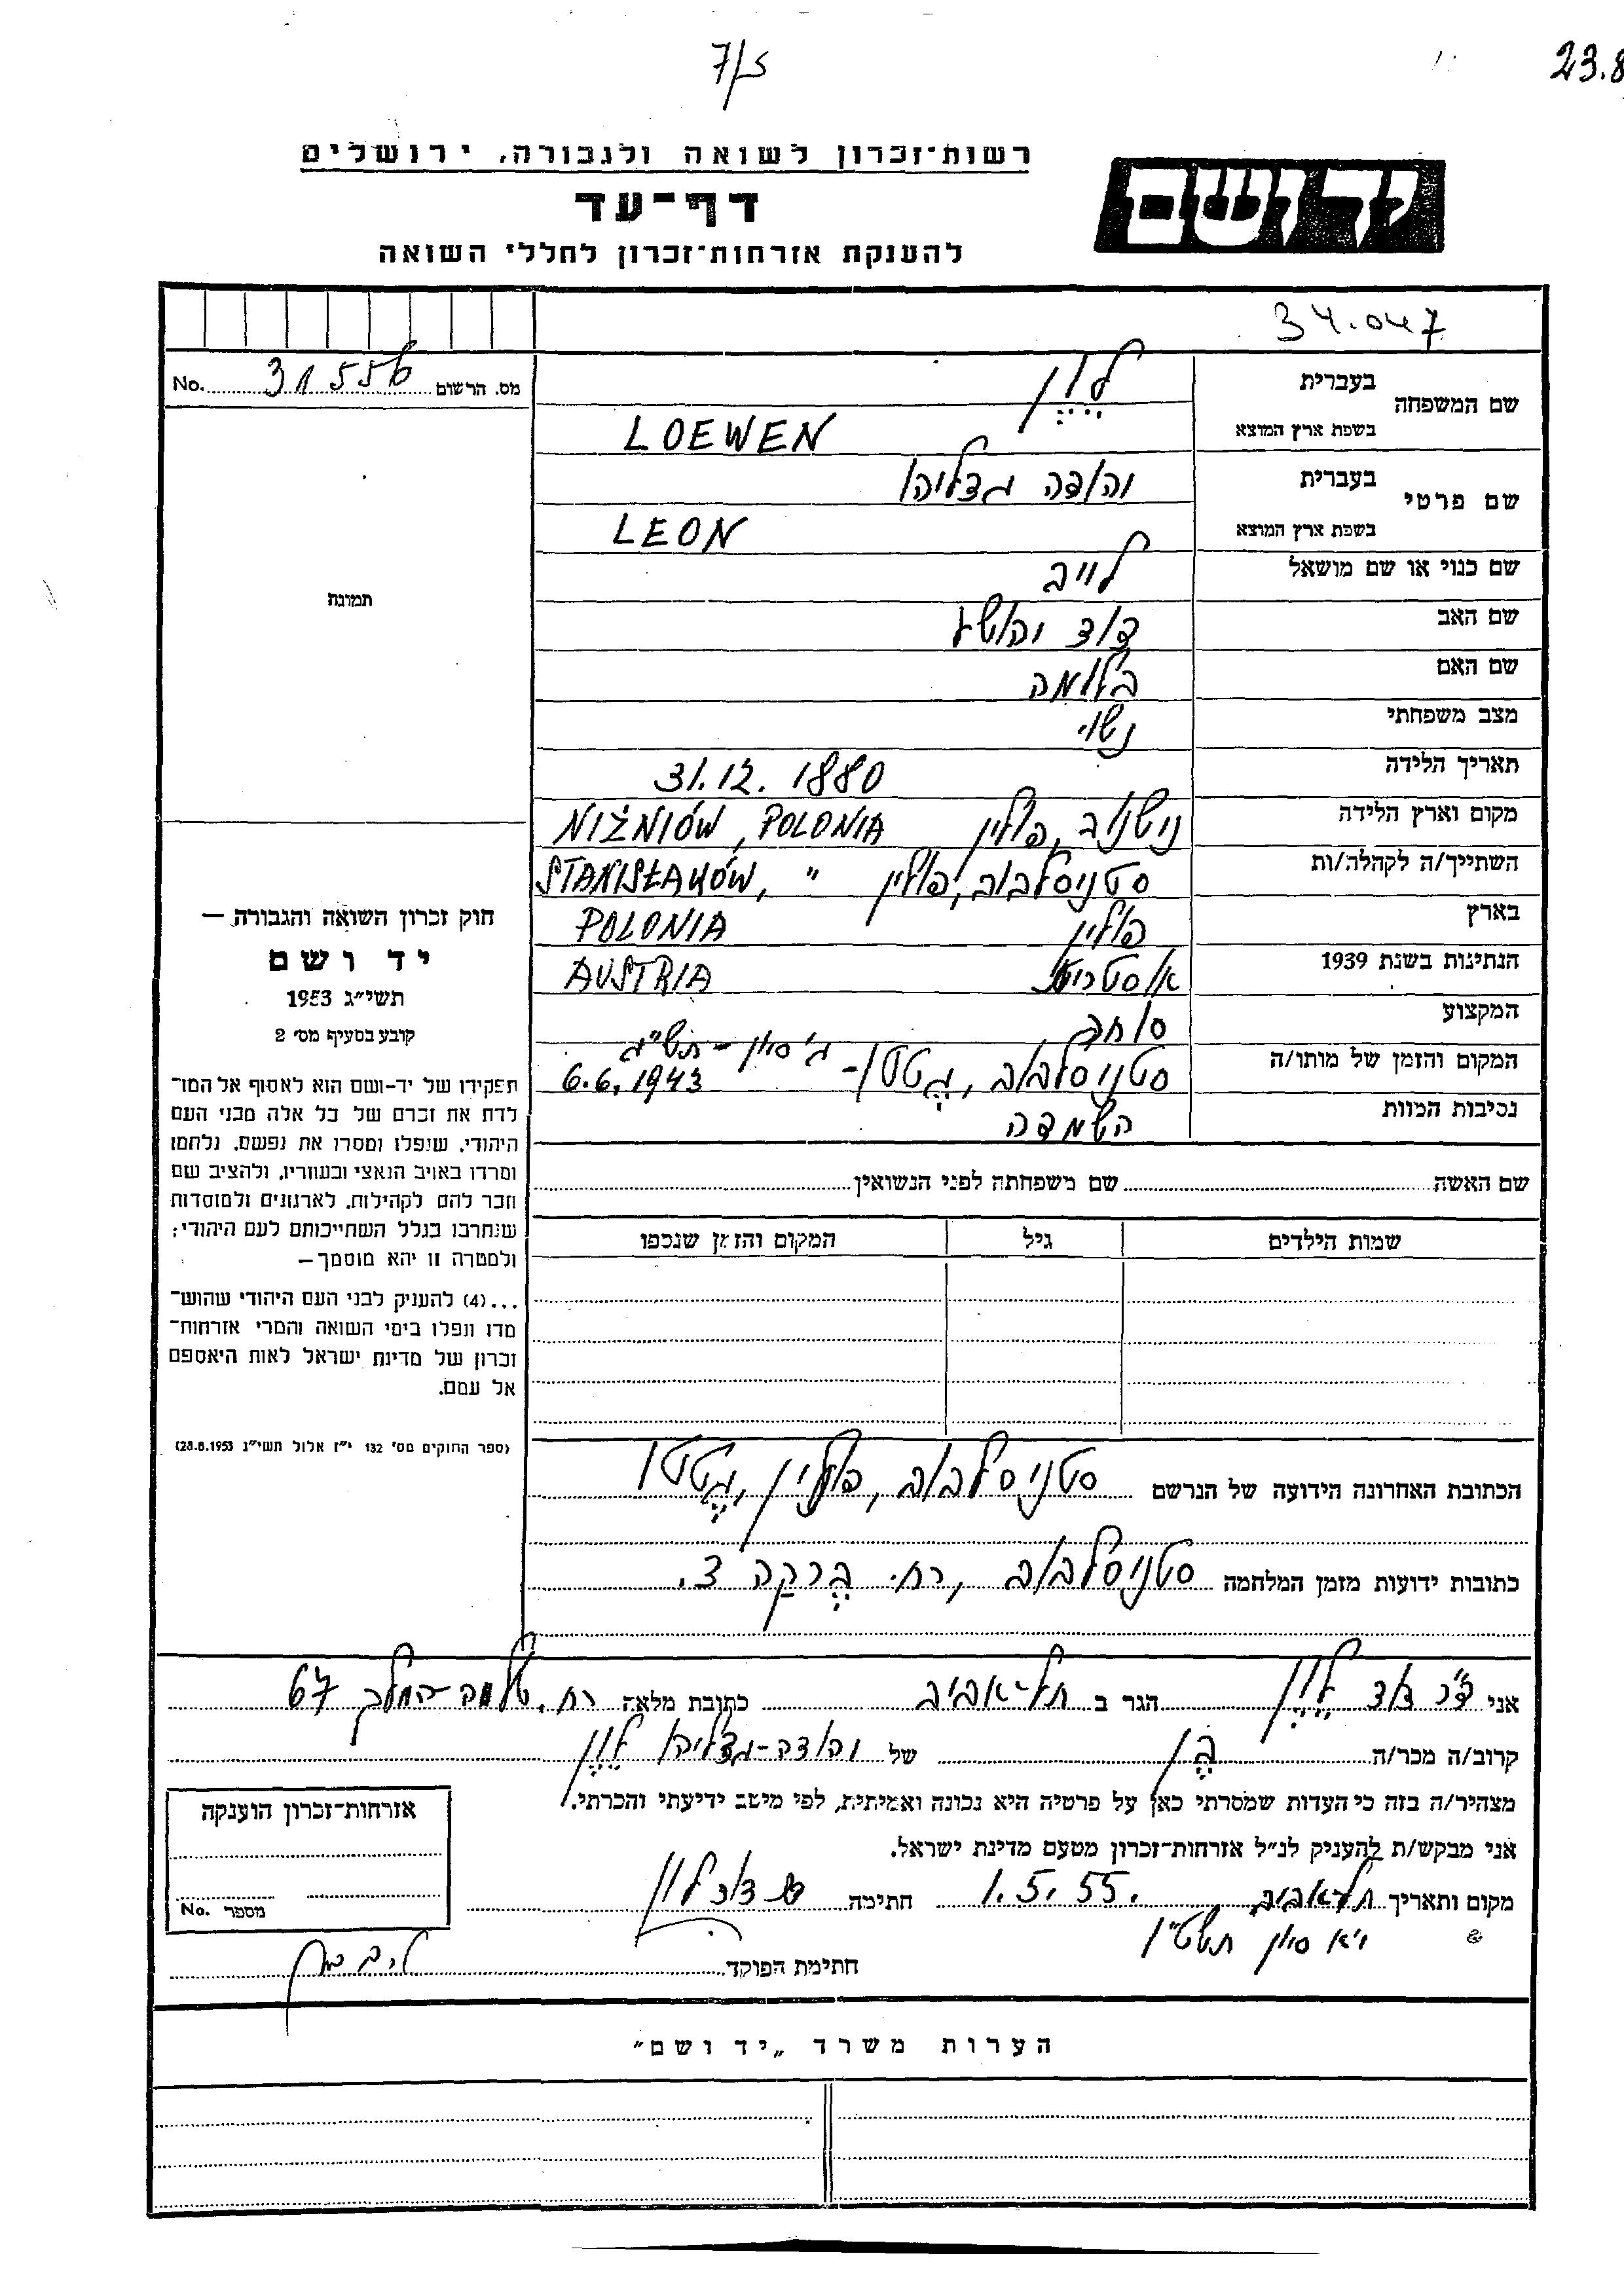 ד/7
23.8
רשות־זכרון לשואה ולגבורה, ירושלים
יד ושם
דף־עד
להענקת אזרחות־זכרון לחללי השואה
34.047
מס. הרשום 31556 No.
שם המשפחה
בעברית לוין
בשפת ארץ המוצא LOEWEN
שם פרטי
בעברית יהודה גדליהו
בשפת ארץ המוצא LEON
שם כנוי או שם מושאל לייב
שם האב דוד יהושע
שם האם בלומה
מצב משפחתי נשוי
תאריך הלידה 31.12.1880
מקום וארץ הלידה נישניוב, פולין NIŻNIÓW, POLONIA
השתייך/ה לקהלה/ות סטניסלבוב, פולין STANISŁAWÓW, "
בארץ פולין POLONIA
הנתינות בשנת 1939 AUSTRIA
המקצוע סוחר
המקום והזמן של מותו/ה סטניסלבוב, גטטו - ג' סיון - תש"ג 6.6.1943
נסיבות המוות השמדה
תמונה
חוק זכרון השואה והגבורה —
יד ושם
תשי״ג 1953
קובע בסעיף מס׳ 2
תפקידו של יד-ושם הוא לאסוף אל המו־
לדת את זכרם של כל אלה מבני העם
היהודי, שנפלו ומסרו את נפשם, נלחמו
ומרדו באויב הנאצי ובעוזריו, ולהציב שם
וזכר להם לקהילות, לארגונים ולמוסדות
שנחרבו בגלל השתייכותם לעם היהודי;
ולמטרה זו יהא מוסמך—
...(4) להעניק לבני העם היהודי שהוש־
מדו ונפלו בימי השואה והמרי אזרחות־
זכרון של מדינת ישראל לאות היאספם
אל עמם.
(ספר החוקים מס׳ 132 י״ז אלול תשי״ג 28.8.1953)
שם האשה שם משפחתה לפני הנשואין
שמות הילדים גיל המקום והזמן שנספו
הכתובת האחרונה הידועה של הנרשם סטניסלבוב, פולין, גטטו
כתובות ידועות מזמן המלחמה סטניסלבוב, רח. ברקה 3.
אני ד"ר דוד לוין הגר ב תל-אביב כתובת מלאה רח. שלמה-המלך 67
קרוב/ה מכר/ה בן של יהודה-גדליהו לוין
מצהיר/ה בזה כי העדות שמסרתי כאן על פרטיה היא נכונה ואמיתית, לפי מיטב ידיעתי והכרתי.
אני מבקש/ת להעניק לנ״ל אזרחות־זכרון מטעם מדינת ישראל.
מקום ותאריך תל-אביב 1.5.55. חתימה
סיון תשט"ו
חתימת הפוקד
אזרחות־זכרון הוענקה
מספר No.
הערות משרד „יד ושם״